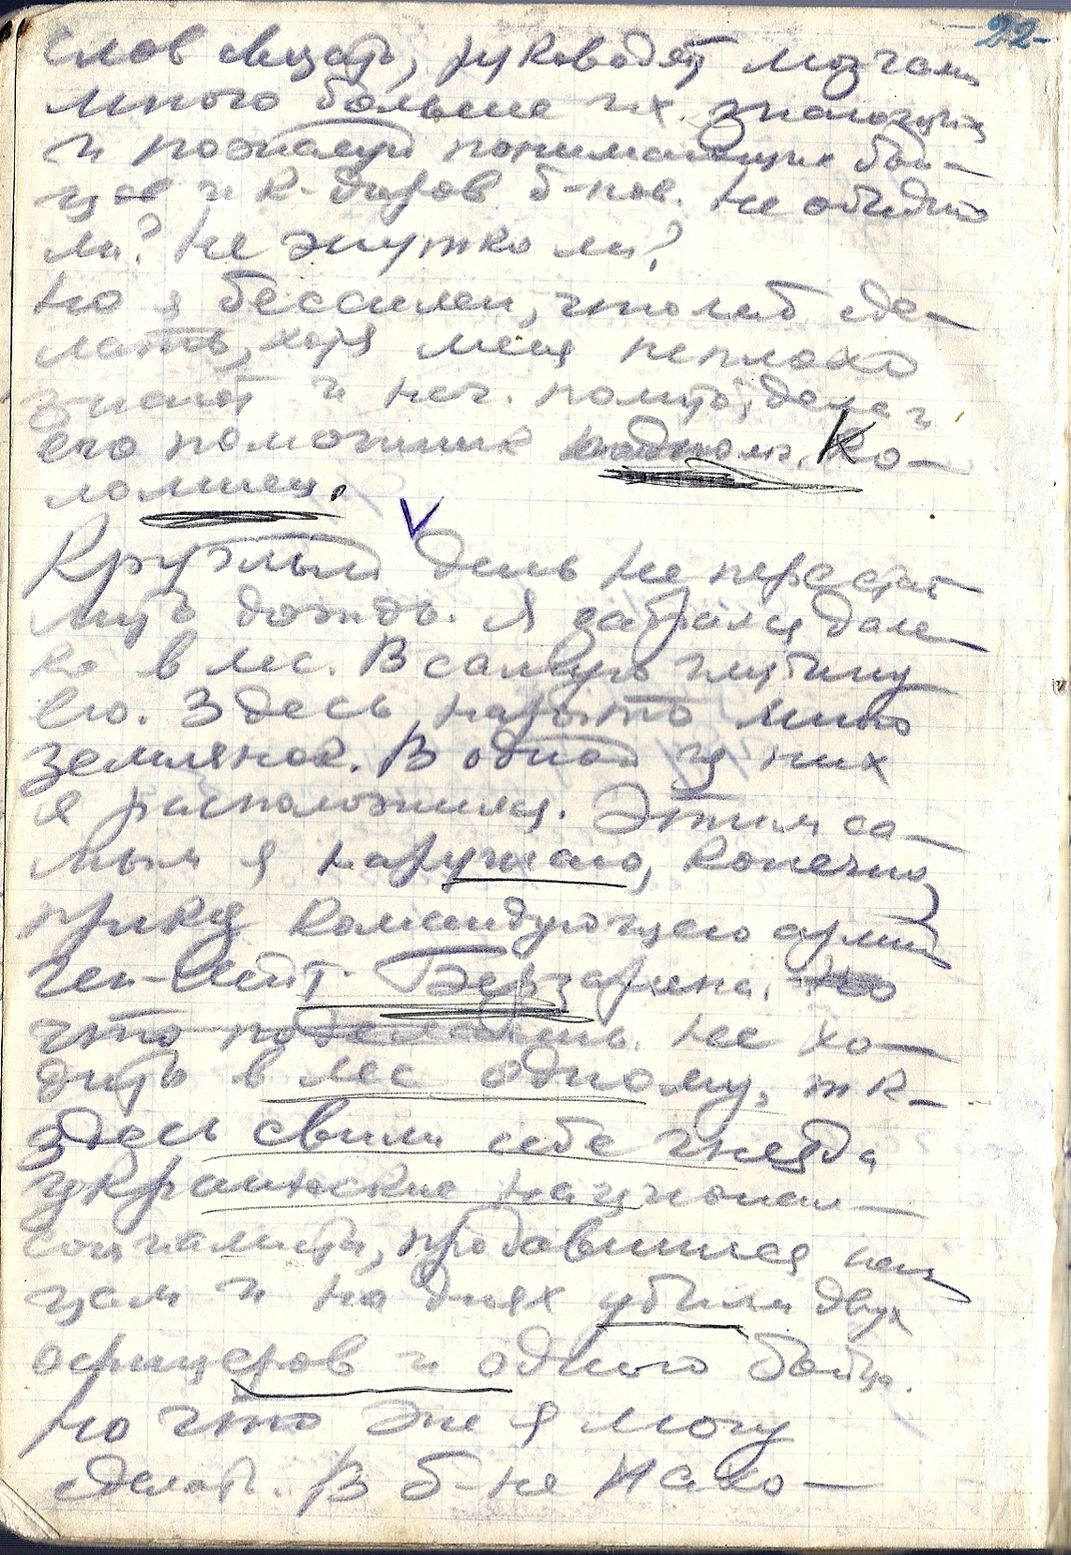 -22-
слов связать, руководят мозгами
много больше их знающих
и пожалуй понимающих бой-
цов и к-диров б-нов. Не обидно
ли? Не жутко ли?
Но я бессилен, что либ сде-
лать, хотя меня неплохо
знают и нач. полито; даже и
его помощник Ко-
ломиец.
Круглый день не перестает
лить дождь. Я забрался дале-
ко в лес. В самую глубину
его. Здесь нарыто много
землянок. В одной из них
я расположился. Этим са-
мым я нарушаю, конечно,
приказ командующего армии
ген-лейт. Берзарина. Но
что поделаешь. Не хо-
дить в лес одному, т к-
здесь свили себе гнезда
украинские национал-
социалисты, продавшиеся нем
цам и на днях убили двух
офицеров и одного бойца.
Но что же я могу
сделать. В б-не Исако-